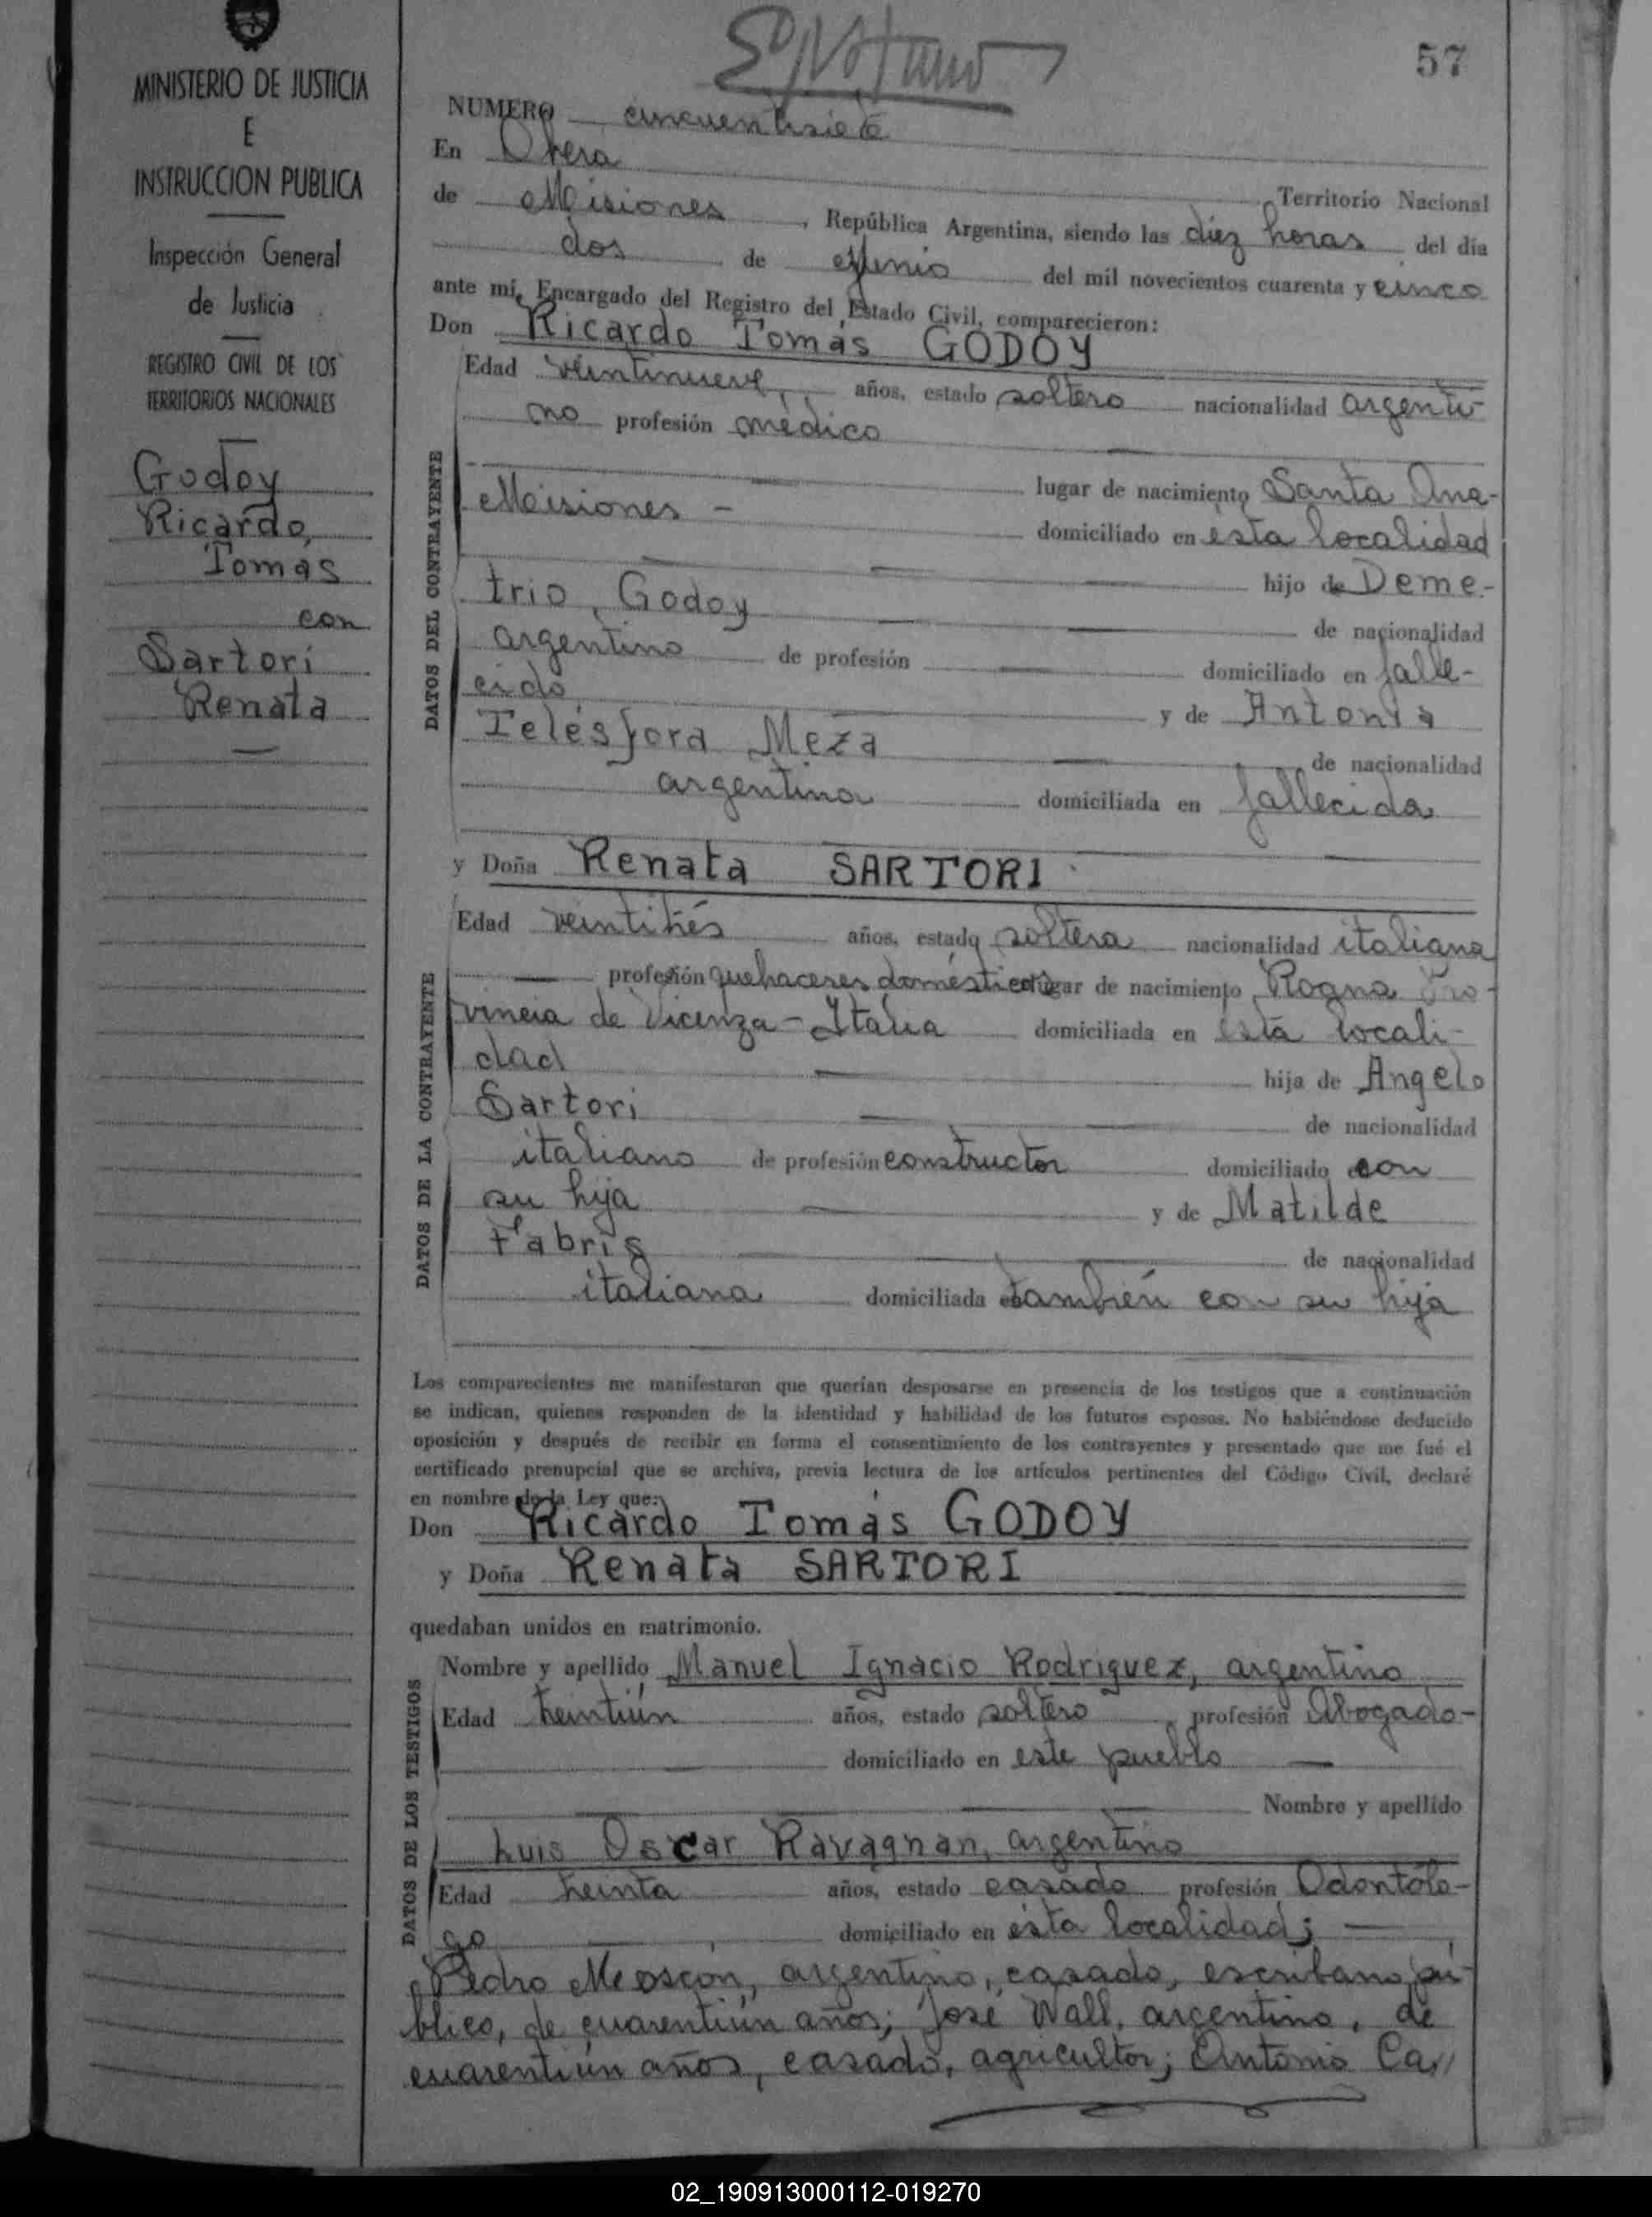 57
MINISTERIO DE JUSTICIA
E
INSTRUCCION PUBLICA
Inspección General
de Justicia
REGISTRO CIVIL DE LOS
TERRITORIOS NACIONALES
Godoy
Ricardo,
Tomas
con
Sartori
Renata
NUMERO cincuentisiete
En Obera
Territorio Nacional
de Misiones, República Argentina, siendo las diez horas del día
dos de Junio del mil novecientos cuarenta y cinco
ante mí, Encargado del Registro del Estado Civil, comparecieron:
Don Ricardo Tomás GODOY
DATOS DEL CONTRAYENTE
Edad veintinueve, años, estado soltero nacionalidad argenti-
no profesión médico
lugar de nacimiento Santa Ana-
Misiones - domiciliado en esta localidad
hijo de Deme-
trio, Godoy de nacionalidad
argentino de profesión domiciliado en falle-
cido y de Antonia
Telésfora Meza de nacionalidad
argentina domiciliada en fallecida
y Doña Renata SARTORI
DATOS DE LA CONTRAYENTE
Edad veintitrés años, estado soltera nacionalidad italiana
profesión quehaceres domésticos lugar de nacimiento Rogna Pro-
vincia de Vicenza - Italia domiciliada en esta locali-
dad hija de Angelo
Sartori de nacionalidad
italiano de profesión constructor domiciliado con
su hija y de Matilde
Fabris de nacionalidad
italiana domiciliada también con su hija
Los comparecientes me manifestaron que querían desposarse en presencia de los testigos que a continuación
se indican, quienes responden de la identidad y habilidad de los futuros esposos. No habiéndose deducido
oposición y después de recibir en forma el consentimiento de los contrayentes y presentado que me fué el
certificado prenupcial que se archiva, previa lectura de los artículos pertinentes del Código Civil, declaré
en nombre de la Ley que:
Don Ricardo Tomás GODOY
y Doña Renata SARTORI
quedaban unidos en matrimonio.
DATOS DE LOS TESTIGOS
Nombre y apellido Manuel Ignacio Rodriguez, argentino
Edad treintiún años, estado soltero profesión Abogado-
domiciliado en este pueblo
Nombre y apellido
Luis Oscar Ravagnan, argentino
Edad treinta años, estado casado profesión Odontólo-
go domiciliado en ésta localidad;
Pedro Moscón, argentino, casado, escribano pú-
blico, de cuarentiún años; José Wall, argentino, de
cuarentiún años, casado, agricultor; Antonio Ca//
02_190913000112-019270